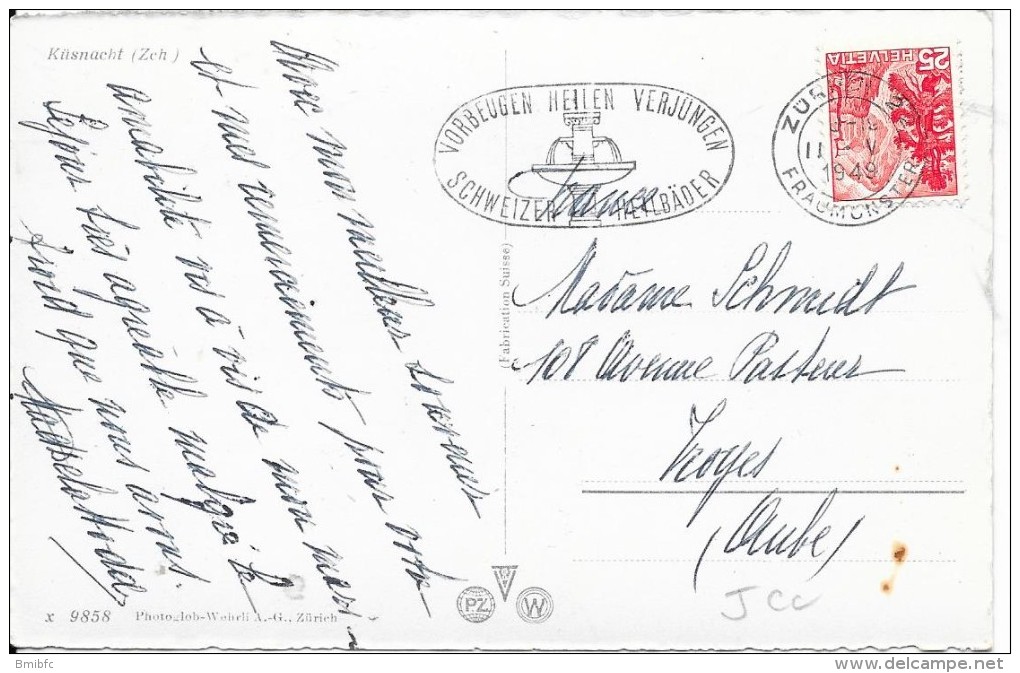 Küsnacht (Zch)
Avec mon meilleur souvenir
et mes remerciements pour votre
amabilité vis à vis de mon mari
Séjour très agréable malgré le
froid que nous avons.
VORBEUGEN HEILEN VERJÜNGEN
SCHWEIZER HEILBÄDER
ZÜRICH
1949
FRAUMÜNSTER
HELVETIA 25
France
Madame Schmidt
108 Avenue Pasteur
Troyes
(Aube)
(Fabrication Suisse)
x 9858 Photoglob-Wehrli A.-G., Zürich
P.Z. W
JCC
Bmibfc
delcampe.net